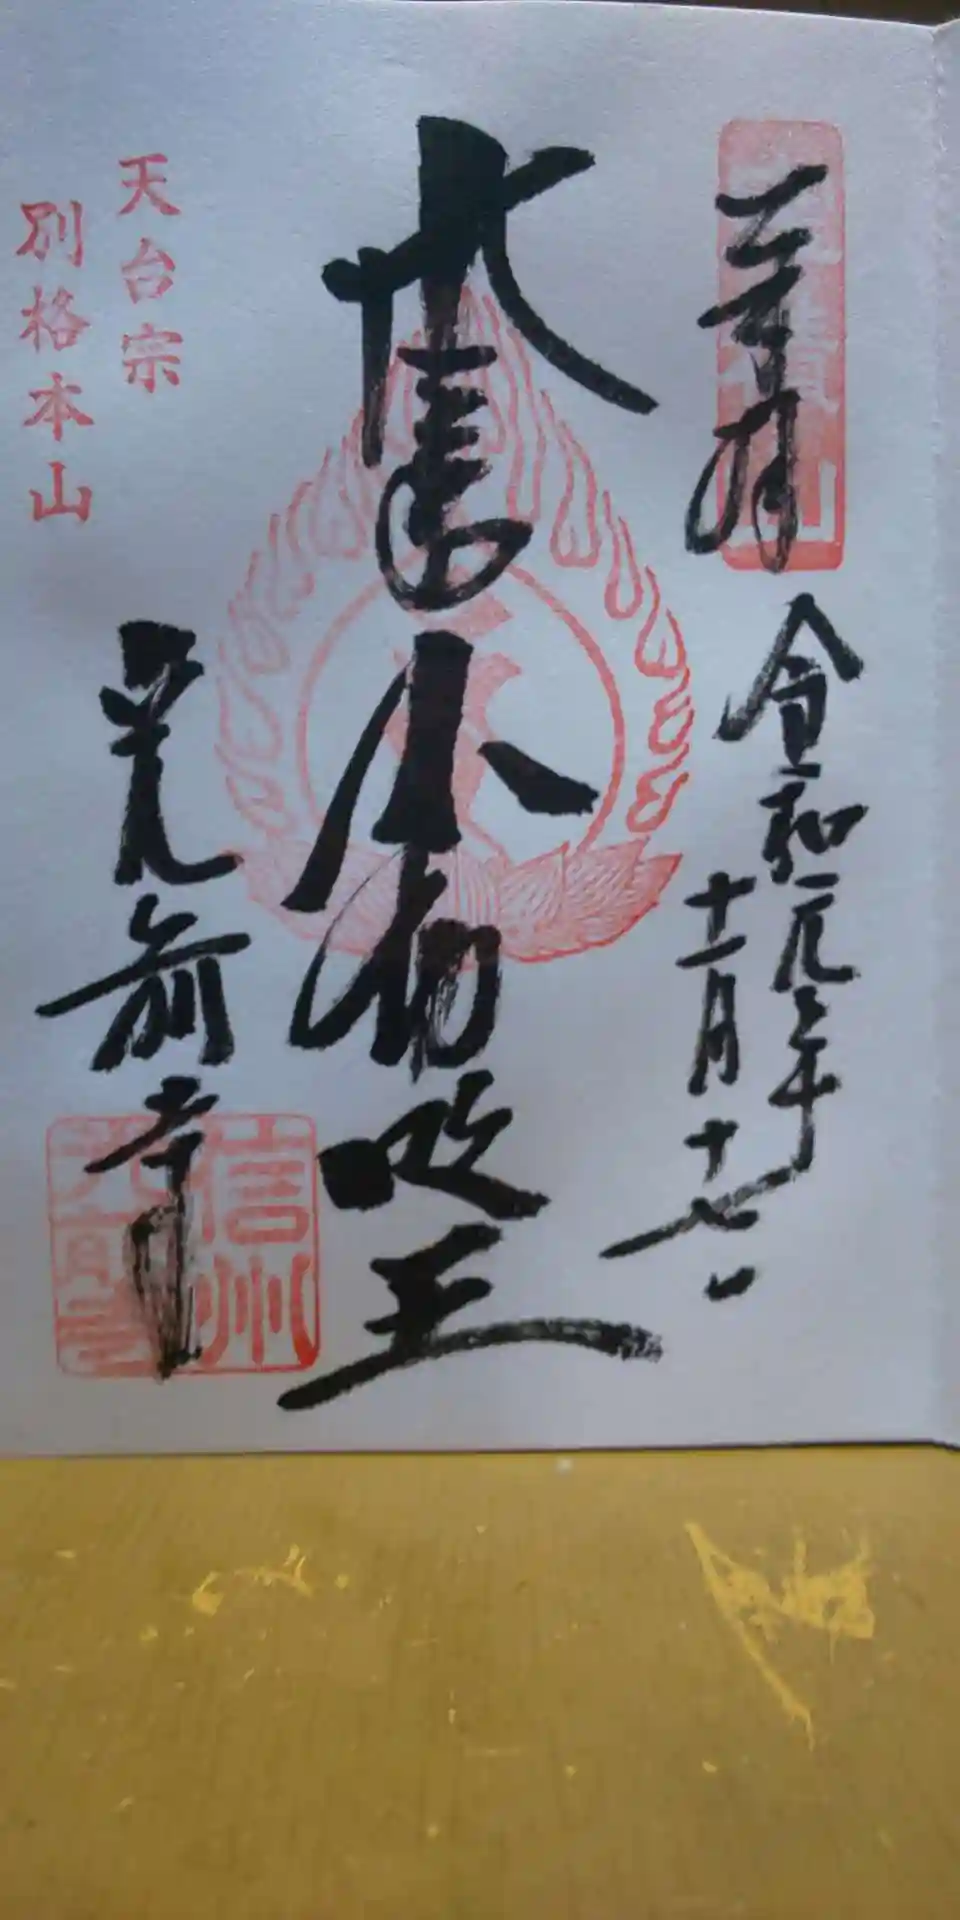 令和元年
十一月十七日
不動明王
天台宗
別格本山
光前寺
信州
光前寺